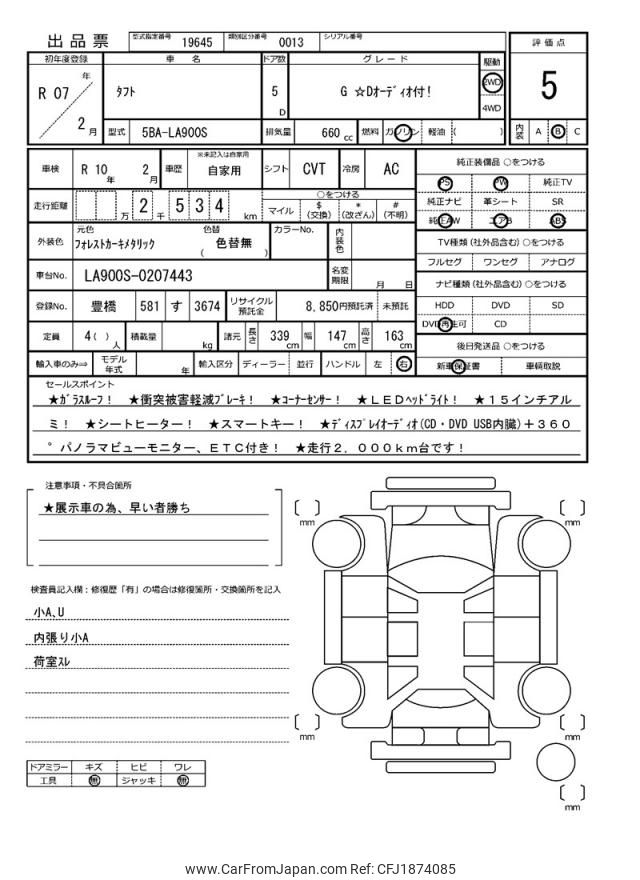 出品票 型式指定番号 19645 類別区分番号 0013 シリアル番号
評価点
初年度登録 車名 ドア数 グレード 駆動
R 07 年 2 月
タフト
5 D
G ☆Dオーディオ付！
2WD
4WD
5
型式 5BA-LA900S 排気量 660 cc 燃料 ガソリン 軽油 ( )
内装 A B C
車検 R 10 年 2 月 車歴 ※未記入は自家用 自家用 シフト CVT 冷房 AC
走行距離 万 2 千 5 3 4 km
○をつける
マイル $ (交換) * (改ざん) # (不明)
外装色 元色 フォレストカーキメタリック 色替 ( 色替無 ) カラーNo. 内装色
車台No. LA900S-0207443 名変期限 月 日
登録No. 豊橋 581 す 3674 リサイクル預託金 8,850円預託済 未預託
定員 4( )人 積載量 kg 諸元 長さ 339 cm 幅 147 cm 高さ 163 cm
輸入車のみ⇒ モデル年式 年 輸入区分 ディーラー 並行 ハンドル 左 右
純正装備品 ○をつける
PS PW 純正TV
純正ナビ 革シート SR
純正AW エアB ABS
TV種類 (社外品含む) ○をつける
フルセグ ワンセグ アナログ
ナビ種類 (社外品含む) ○をつける
HDD DVD SD
DVD再生可 CD
後日発送品 ○をつける
新車保証書 車輌取説
セールスポイント
★ガラスルーフ！ ★衝突被害軽減ブレーキ！ ★コーナーセンサー！ ★LEDヘッドライト！ ★15インチアル
ミ！ ★シートヒーター！ ★スマートキー！ ★ディスプレイオーディオ(CD・DVD USB内臓)＋360
°パノラマビューモニター、ETC付き！ ★走行2，000km台です！
注意事項・不具合箇所
★展示車の為、早い者勝ち
検査員記入欄：修復歴「有」の場合は修復箇所・交換箇所を記入
小A、U
内張り小A
荷室スレ
ドアミラー キズ ヒビ ワレ
工具 無 ジャッキ 無
mm
mm
mm
mm
mm
www.CarFromJapan.com Ref: CFJ1874085